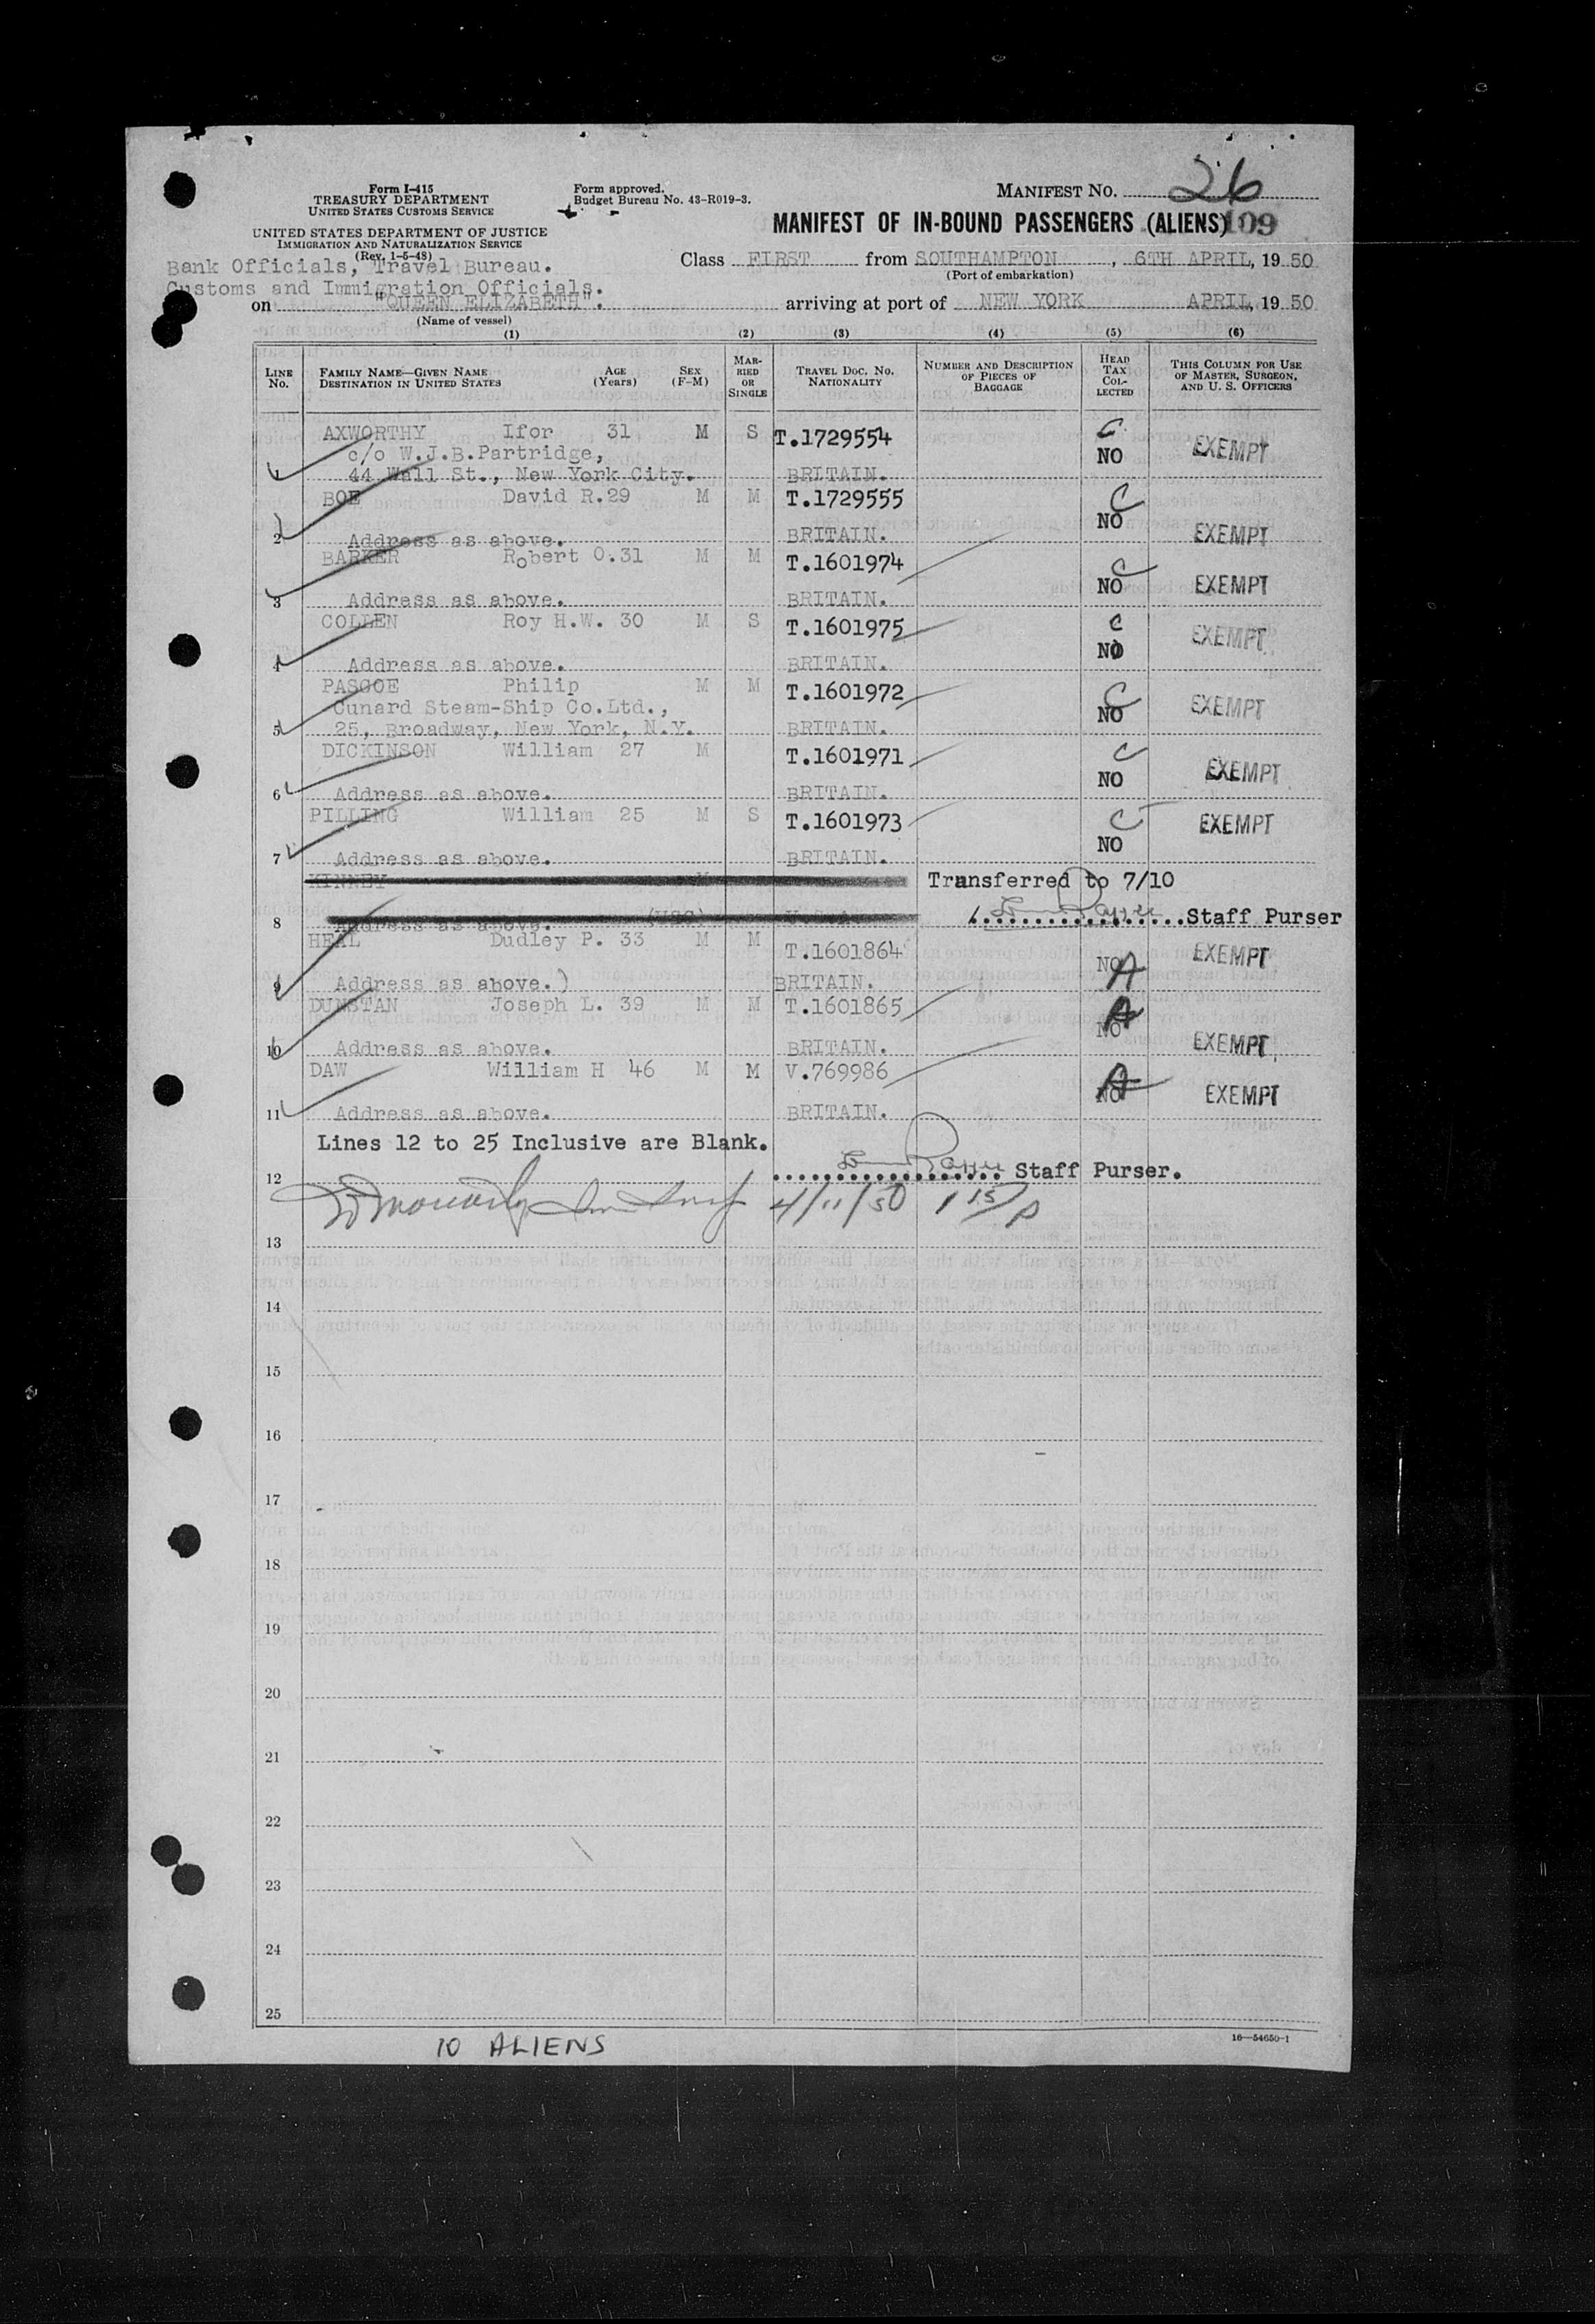 Form I-415
TREASURY DEPARTMENT
UNITED STATES CUSTOMS SERVICE
UNITED STATES DEPARTMENT OF JUSTICE
IMMIGRATION AND NATURALIZATION SERVICE
(Rev. 1-5-48)
Form approved.
Budget Bureau No. 43-R019-3.
MANIFEST NO. 26
MANIFEST OF IN-BOUND PASSENGERS (ALIENS) 109
Bank Officials, Travel Bureau.
Customs and Immigration Officials.
Class FIRST from SOUTHAMPTON, 6TH APRIL, 1950
(Port of embarkation)
on "QUEEN ELIZABETH". arriving at port of NEW YORK APRIL, 1950
(Name of vessel)
(1) (2) (3) (4) (5) (6)
LINE No. FAMILY NAME—GIVEN NAME DESTINATION IN UNITED STATES AGE (Years) SEX (F-M) MARRIED OR SINGLE TRAVEL DOC. NO. NATIONALITY NUMBER AND DESCRIPTION OF PIECES OF BAGGAGE HEAD TAX COLLECTED THIS COLUMN FOR USE OF MASTER, SURGEON, AND U. S. OFFICERS
AXWORTHY Ifor 31 M S T.1729554 C
c/o W.J.B.Partridge, NO EXEMPT
1 44 Wall St., New York City. BRITAIN.
BOE David R.29 M M T.1729555 C NO
2 Address as above. BRITAIN. EXEMPT
BARKER Robert O.31 M M T.1601974 C
3 Address as above. BRITAIN. NO EXEMPT
COLLEN Roy H.W. 30 M S T.1601975 C EXEMPT
4 Address as above. BRITAIN. NO
PASCOE Philip M M T.1601972 C
Cunard Steam-Ship Co.Ltd., NO EXEMPT
5 25, Broadway, New York, N.Y. BRITAIN.
DICKINSON William 27 M T.1601971 C
6 Address as above. BRITAIN. NO EXEMPT
PILLING William 25 M S T.1601973 C EXEMPT
7 Address as above. BRITAIN. NO
KINNEY M Transferred to 7/10
8 Address as above. (USC) Staff Purser
HEAL Dudley P. 33 M M T.1601864 EXEMPT
9 Address as above.) BRITAIN. NO A
DUNSTAN Joseph L. 39 M M T.1601865 A NO
10 Address as above. BRITAIN. EXEMPT
DAW William H 46 M M V.769986 A NO
11 Address as above. BRITAIN. EXEMPT
Lines 12 to 25 Inclusive are Blank.
12 Staff Purser.
4/11/50 1 15/p
13
14
15
16
17
18
19
20
21
22
23
24
25
10 ALIENS
16—54650-1